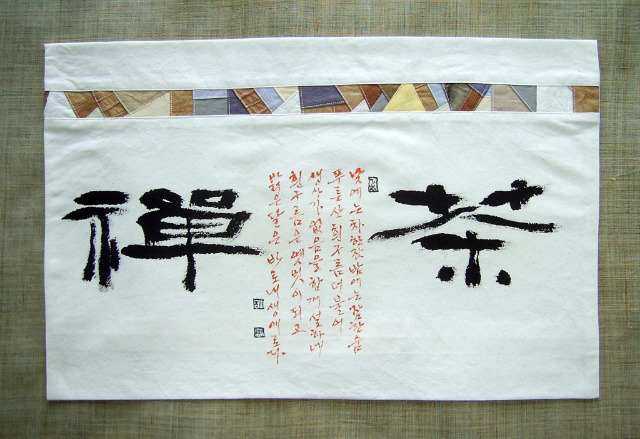 茶
낮에는 차 한잔 밤에는 잠 한숨
푸른 산 흰구름 더불어
생사가 없음을 함께 설하네
흰구름은 옛 벗이 되고
밝은 달은 바로 내 생애로다.
禪